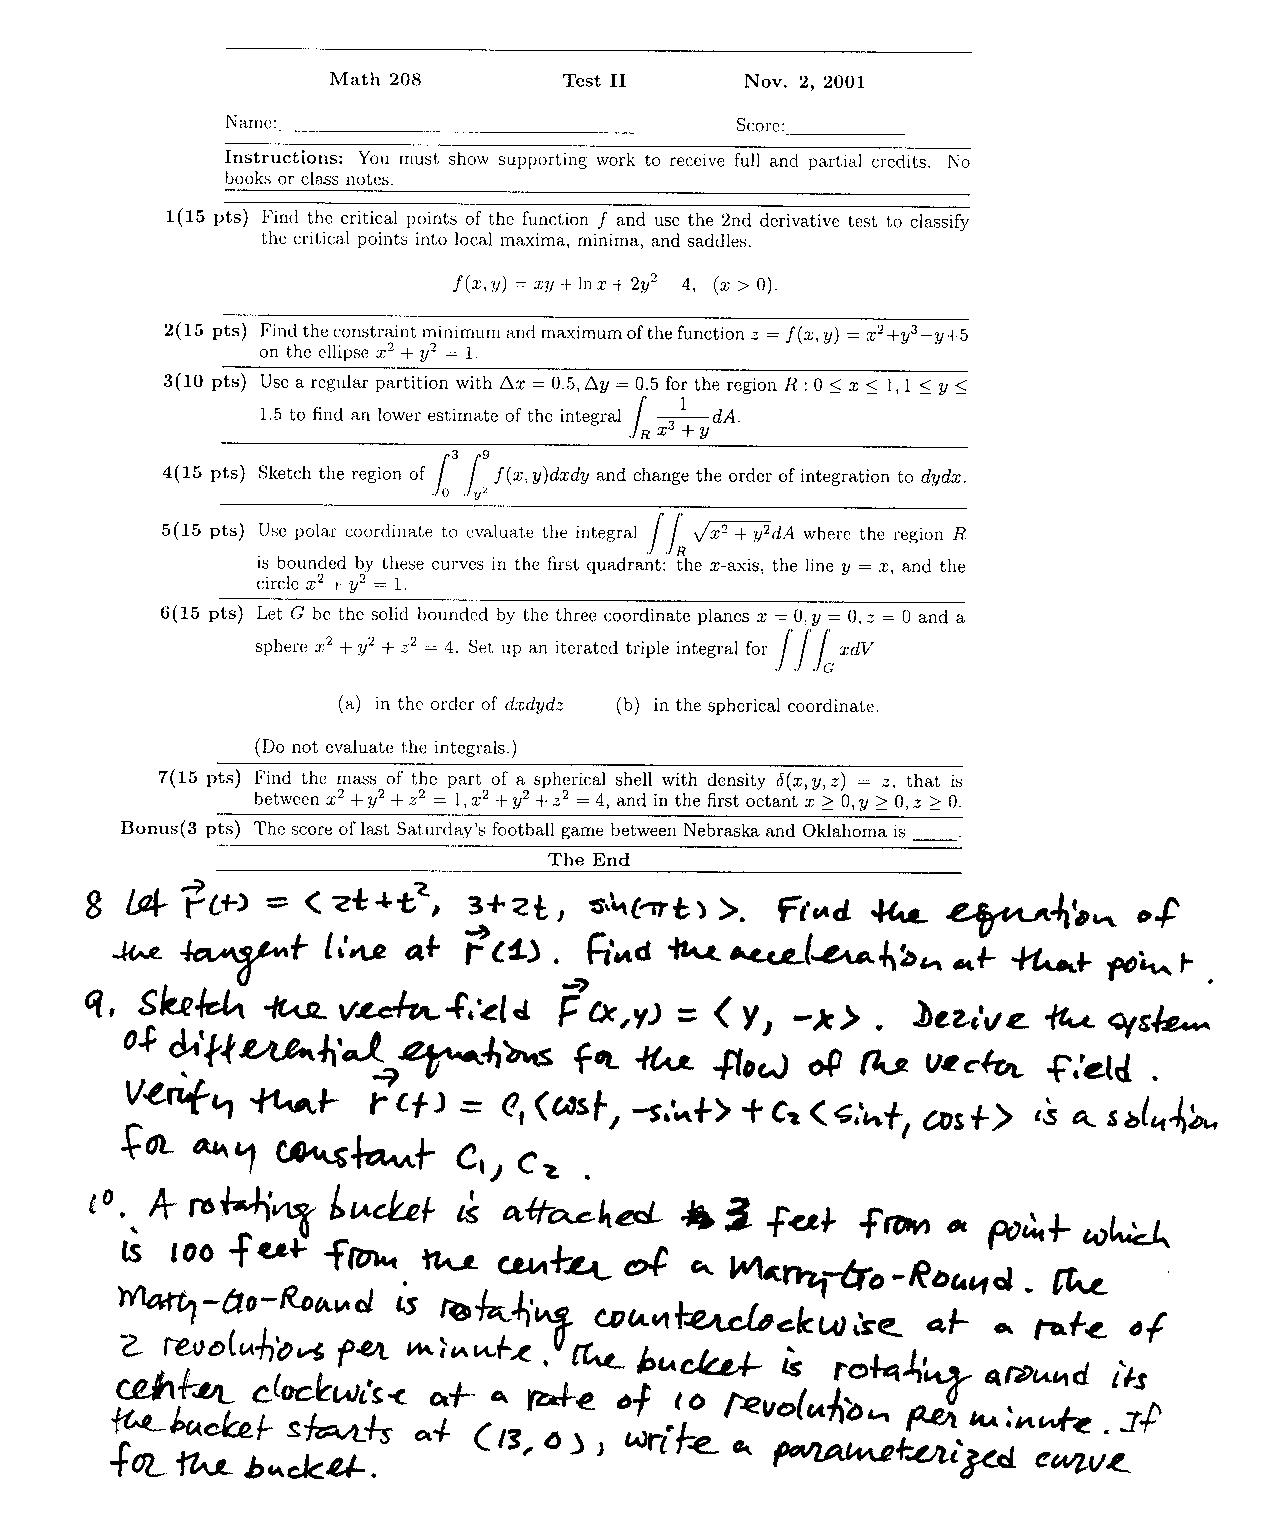 Math 208 Test II Nov. 2, 2001
Name: Score:
Instructions: You must show supporting work to receive full and partial credits. No
books or class notes.
1(15 pts) Find the critical points of the function f and use the 2nd derivative test to classify
the critical points into local maxima, minima, and saddles.
f(x, y) = xy + ln x + 2y² 4, (x > 0).
2(15 pts) Find the constraint minimum and maximum of the function z = f(x, y) = x²+y³−y+5
on the ellipse x² + y² = 1.
3(10 pts) Use a regular partition with Δx = 0.5, Δy = 0.5 for the region R : 0 ≤ x ≤ 1, 1 ≤ y ≤
1.5 to find an lower estimate of the integral ∫_R 1/(x³ + y) dA.
4(15 pts) Sketch the region of ∫_0^3 ∫_{y²}^9 f(x, y)dxdy and change the order of integration to dydx.
5(15 pts) Use polar coordinate to evaluate the integral ∫∫_R √(x² + y²)dA where the region R
is bounded by these curves in the first quadrant: the x-axis, the line y = x, and the
circle x² + y² = 1.
6(15 pts) Let G be the solid bounded by the three coordinate planes x = 0, y = 0, z = 0 and a
sphere x² + y² + z² = 4. Set up an iterated triple integral for ∫∫∫_G xdV
(a) in the order of dxdydz (b) in the spherical coordinate.
(Do not evaluate the integrals.)
7(15 pts) Find the mass of the part of a spherical shell with density δ(x, y, z) = z, that is
between x² + y² + z² = 1, x² + y² + z² = 4, and in the first octant x ≥ 0, y ≥ 0, z ≥ 0.
Bonus(3 pts) The score of last Saturday's football game between Nebraska and Oklahoma is ____.
The End
8 Let r⃗(t) = <2t+t², 3+2t, sin(πt)>. Find the equation of
the tangent line at r⃗(1). Find the acceleration at that point.
9. Sketch the vector field F⃗(x,y) = <y, -x>. Derive the system
of differential equations for the flow of the vector field.
Verify that r⃗(t) = C₁<cost, -sint> + C₂<sint, cost> is a solution
for any constant C₁, C₂.
10. A rotating bucket is attached 3 feet from a point which
is 100 feet from the center of a Marry-Go-Round. The
Marry-Go-Round is rotating counterclockwise at a rate of
2 revolutions per minute. The bucket is rotating around its
center clockwise at a rate of 10 revolution per minute. If
the bucket starts at (13, 0), write a parameterized curve
for the bucket.